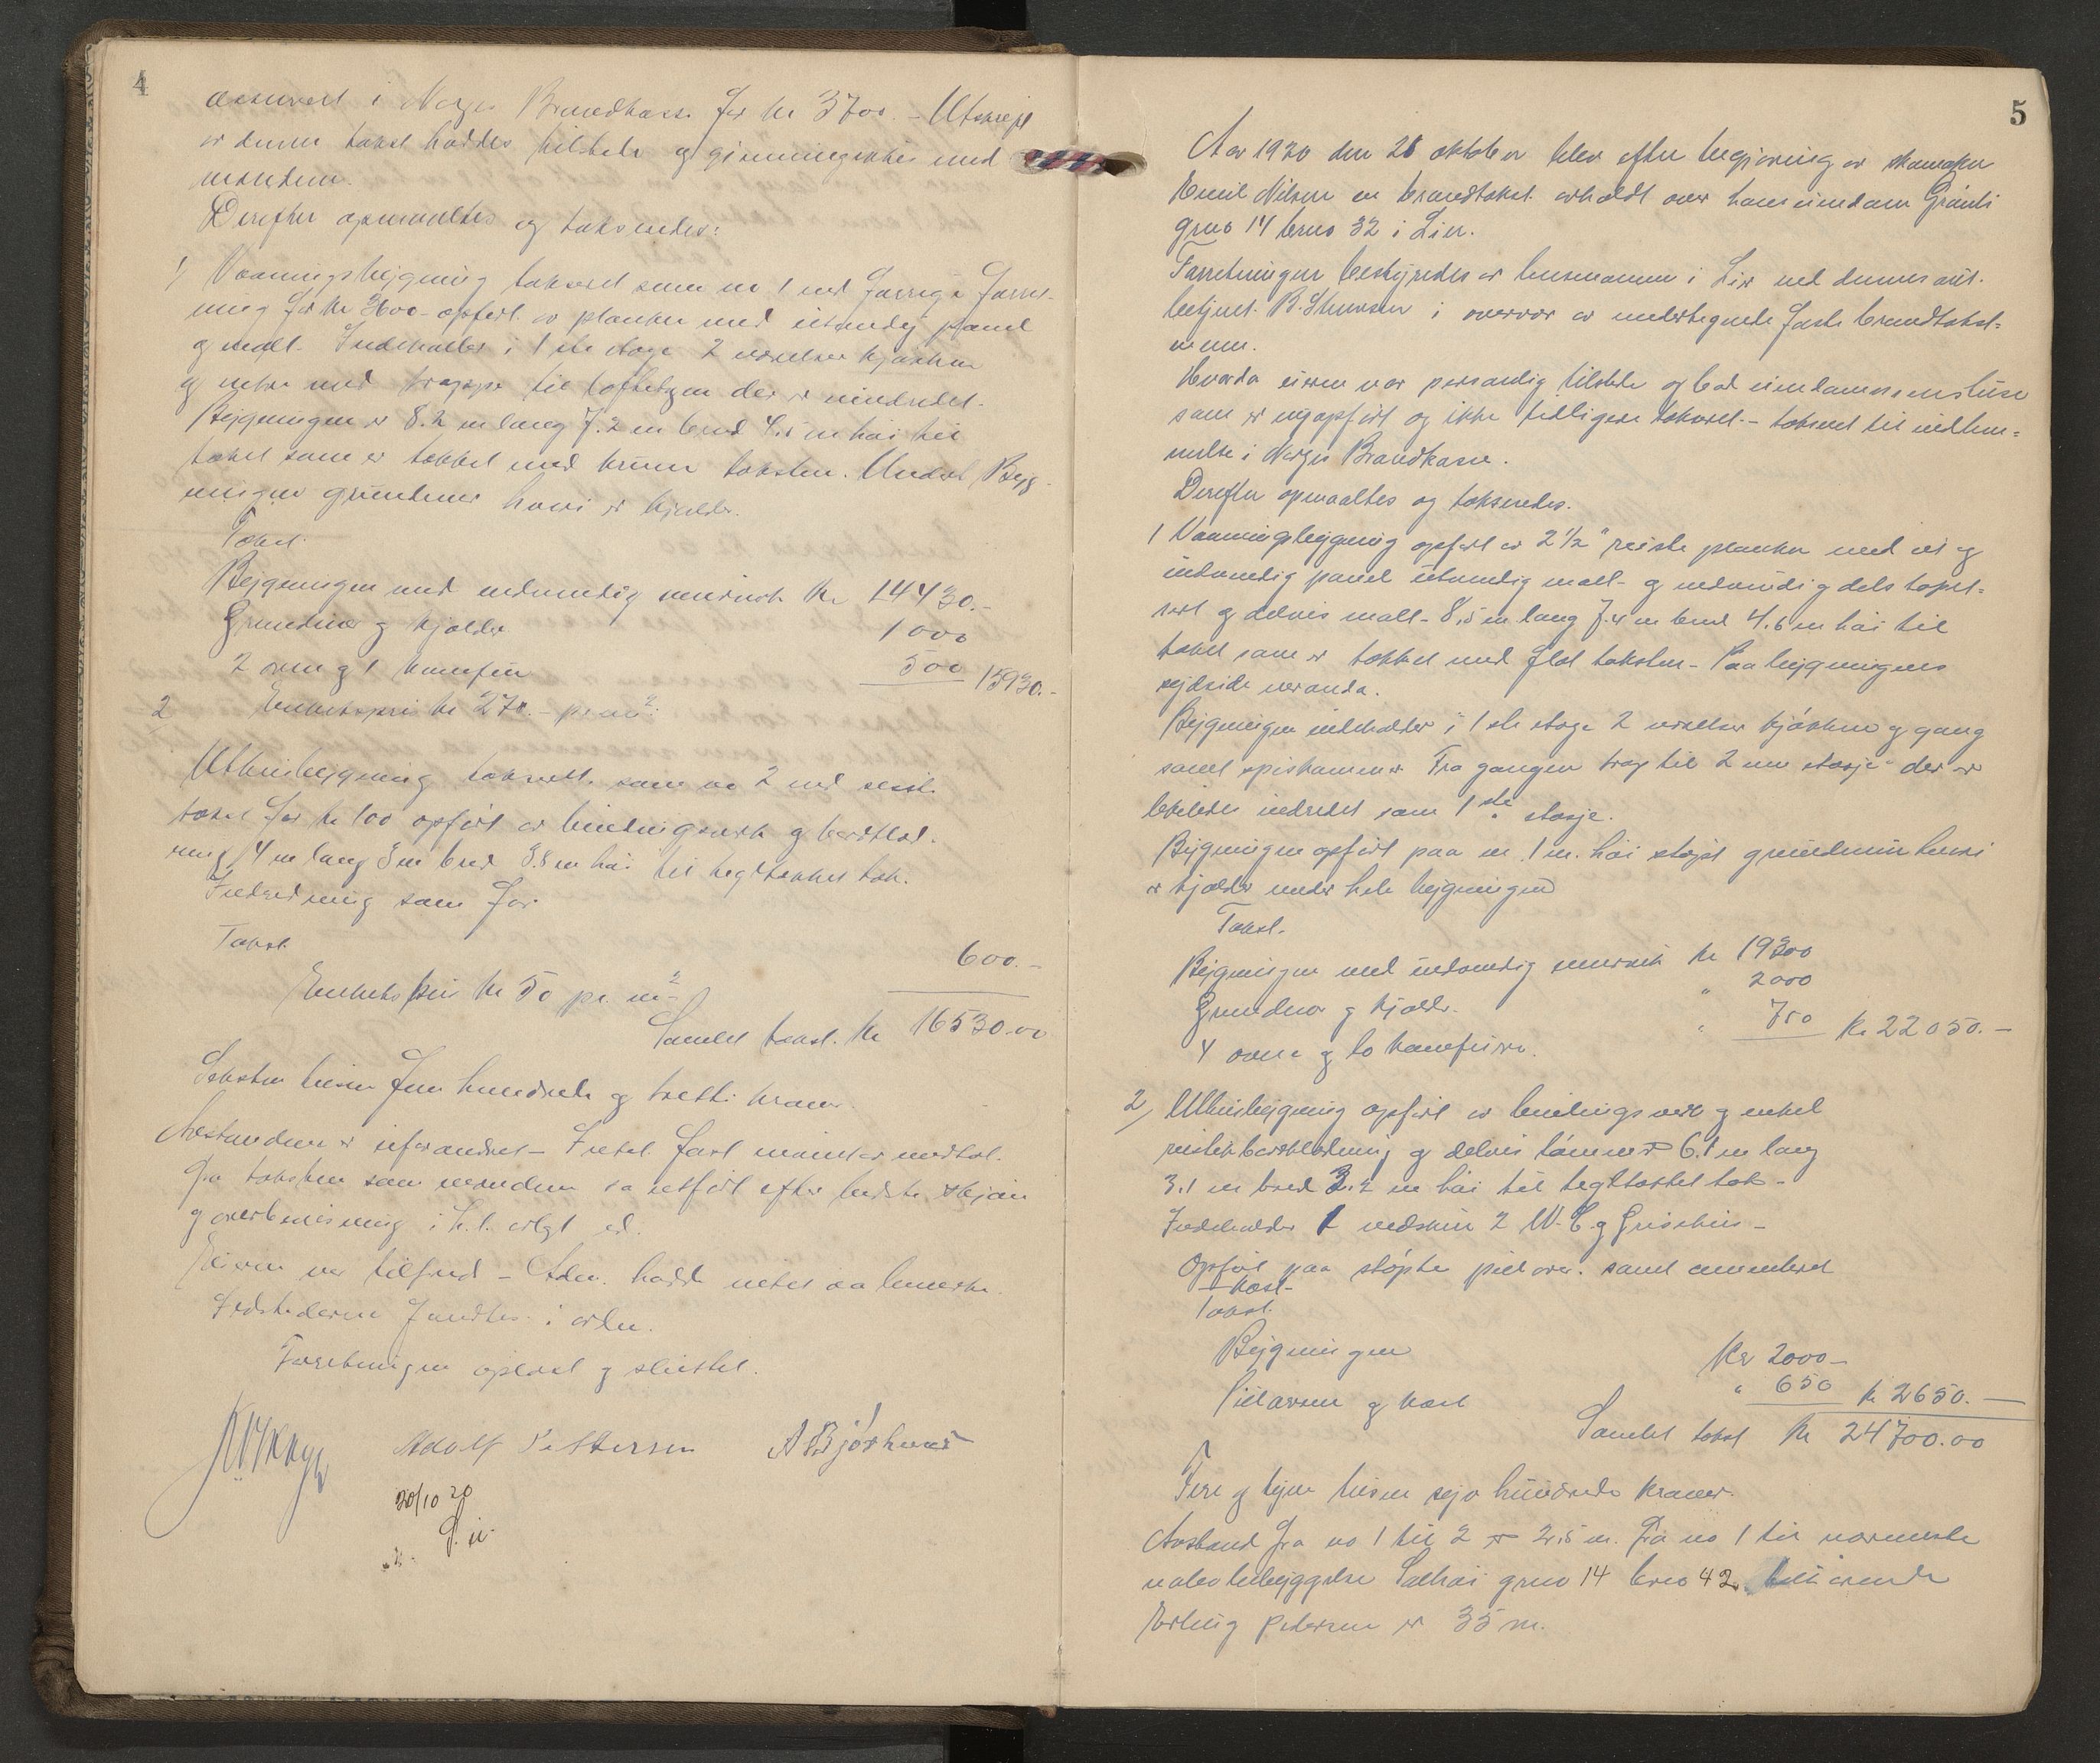 4
assurert i Norges Brandkasse for kr 3700.- Utskrift
av denne takst haddes tilstede og gjennemgikkes med
mændene.
Derefter opmaaltes og taksertes:
1) Vaaningsbygning taksert som no 1 ved forrige forret-
ning for kr 3600- opført av planker med utvendig panel
og malt. Indeholder i 1ste etage 2 værelser kjøkken
og entre med trappe til loftetagen der er uindredet.
Bygningen er 8.2 m lang 7.2 m bred 4.5 m høi til
taket som er tækket med krum taksten. Under Byg-
ningen grundmur hvori er kjælder.
Takst.
Bygningen med indvendig murverk kr 14430.-
Grundmur og kjælder 1000
2 ovne og 1 komfur 500 15930.-
Enhetspris kr 270.- pr m²
2
Uthusbygning takseret som no 2 ved sisste
takst for kr 100 opført av bindingsverk og bordklæd-
ning 4 m lang 3 m bred 3.8 m høi til tegltækket tak.
Indredning som før
Takst 600.-
Enhetspris kr 50 pr. m²
Samlet takst. Kr 16530.00
Seksten tusen fem hundrede og tretti kroner.
Avstandene er uforandret - Intet fast maskineri medtat.
Paa taksten som mændene sa utført efter bedste skjøn
og overbevisning i h.t. avlagt ed.
Eieren var tilfreds - Adm. hadde intet aa bemerke.
Ildstederne fandtes i orden.
Forretningen oplæst og sluttet.
Adolf Pettersen A Bjørknes
20/10 20
5
Aar 1920 den 26 oktober blev efter begjæring av skomaker
Emil Nilsen en brandtakst avholdt over hans eiendom Granli
gno 14 bruo 32 i Lier.
Forretningen bestyredes av lensmannen i Lier ved dennes aut.
betjent. B. Stuvsen i overvær av undertegnede faste brandtakst-
menn.
Hvorda eieren var personlig tilstede og bad eiendommens huse
som er nyopført og ikke tidligere taksert - taksert til indlem-
melse i Norges Brandkasse.
Derefter opmaaltes og taksertes.
1 Vaaningsbygning opført av 2 1/2" reiste planker med ut og
indvendig panel utvendig malt - og indvendig dels tapet-
sert og delvis malt - 8.5 m lang 7.4 m bred 4.6 m høi til
taket som er tækket med flat taksten - Paa bygningens
sydside veranda.
Bygningen indeholder i 1ste etage 2 værelser kjøkken og gang
samt spiskammer. Fra gangen trap til 2nen etasje der er
likeledes indredet som 1ste etasje.
Bygningen opført paa en 1 m. høi støpt grundmur hvori
er kjælder under hele bygningen
Takst.
Bygningen med indvendig murverk kr 19300
Grundmur og kjælder. " 2000
4 ovne og to komfurer. " 750 Kr 22050.-
2) Uthusbygning opført av bindingsverk og enkel
reistet bordklædning og delvis tømmer 6.1 m lang
3.1 m bred 3.2 m høi til tegltækket tak -
Indeholder 1 vedskur 2 W.C. og Grisehus -
Opført paa støpte pielarer. samt cementeret
kast-
Takst.
Bygningen Kr 2000-
Pielarene og kast " 650 kr 2650.-
Samlet takst Kr 24700.00
Fire og tyve tusen syv hundrede kroner.
Avstand fra no 1 til 2 er 2.5 m. Fra no 1 til nærmeste
nabobebyggelse Solhøi gno 14 bruo 42 tilhørende
Erling Pedersen er 35 m.